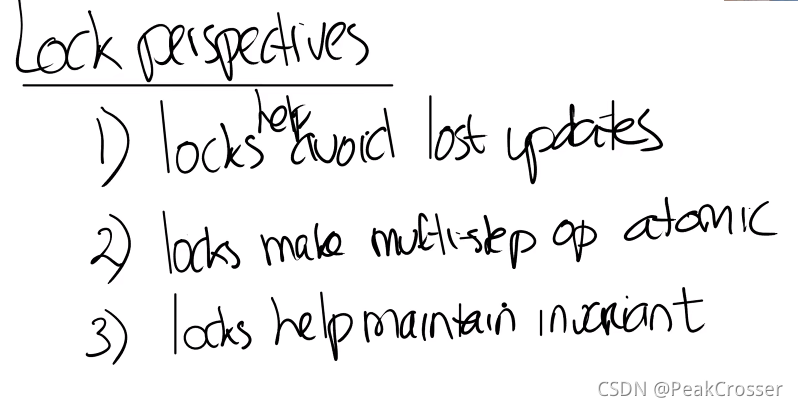 Lock perspectives
1) locks help avoid lost updates
2) locks make multi-step op atomic
3) locks help maintain invariant
CSDN @PeakCrosser